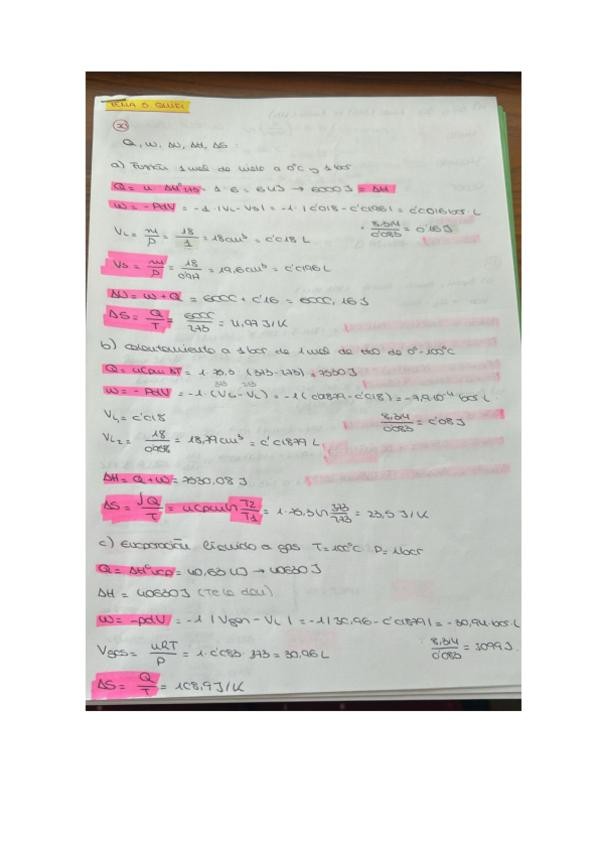 TEMA 3. QUIMI
Q, W, ΔU, ΔH, ΔS
a) Fusión 1 mol de hielo a 0°C y 1 bar
Q = n · ΔH°fus = 1 · 6 = 6 kJ → 6000 J = ΔH
W = -PdV = -1 · (VL - VS) = -1 · (0'018 - 0'0196) = 0'0016 bar · L
· 8,314/0'083 = 0'16 J
VL = m/ρ = 18/1 = 18 cm³ = 0'018 L
VS = m/ρ = 18/0'917 = 19,6 cm³ = 0'0196 L
ΔU = W + Q = 6000 + 0'16 = 6000,16 J
ΔS = Q/T = 6000/273 = 21,97 J/K
b) Calentamiento a 1 bar de 1 mol de H2O de 0°-100°C
Q = nCpm ΔT = 1 · 75,3 · (373-273) = 7530 J
W = -PdV = -1 · (VL 373 - VL 273) = -1 (0'01879 - 0'018) = -7,9·10⁻⁴ bar L
VL1 = 0'018
8,314/0'083 = 0'08 J
VL2 = 18/0'958 = 18,79 cm³ = 0'01879 L
ΔH = Q + W = 7530,08 J
ΔS = ∫Q/T = nCpm ln T2/T1 = 1 · 75,3 ln 373/273 = 23,5 J/K
c) Evaporación líquido a gas T=100°C P=1 bar
Q = ΔH°vap = 40,63 kJ → 40630 J
ΔH = 40630 J (te lo dan)
W = -pdV = -1 (Vgas - VL) = -1 (30,96 - 0'01879) = -30,94 bar · L
Vgas = nRT/P = 1 · 0'083 · 373 = 30,96 L
· 8,314/0'083 = 3099 J
ΔS = Q/T = 108,9 J/K